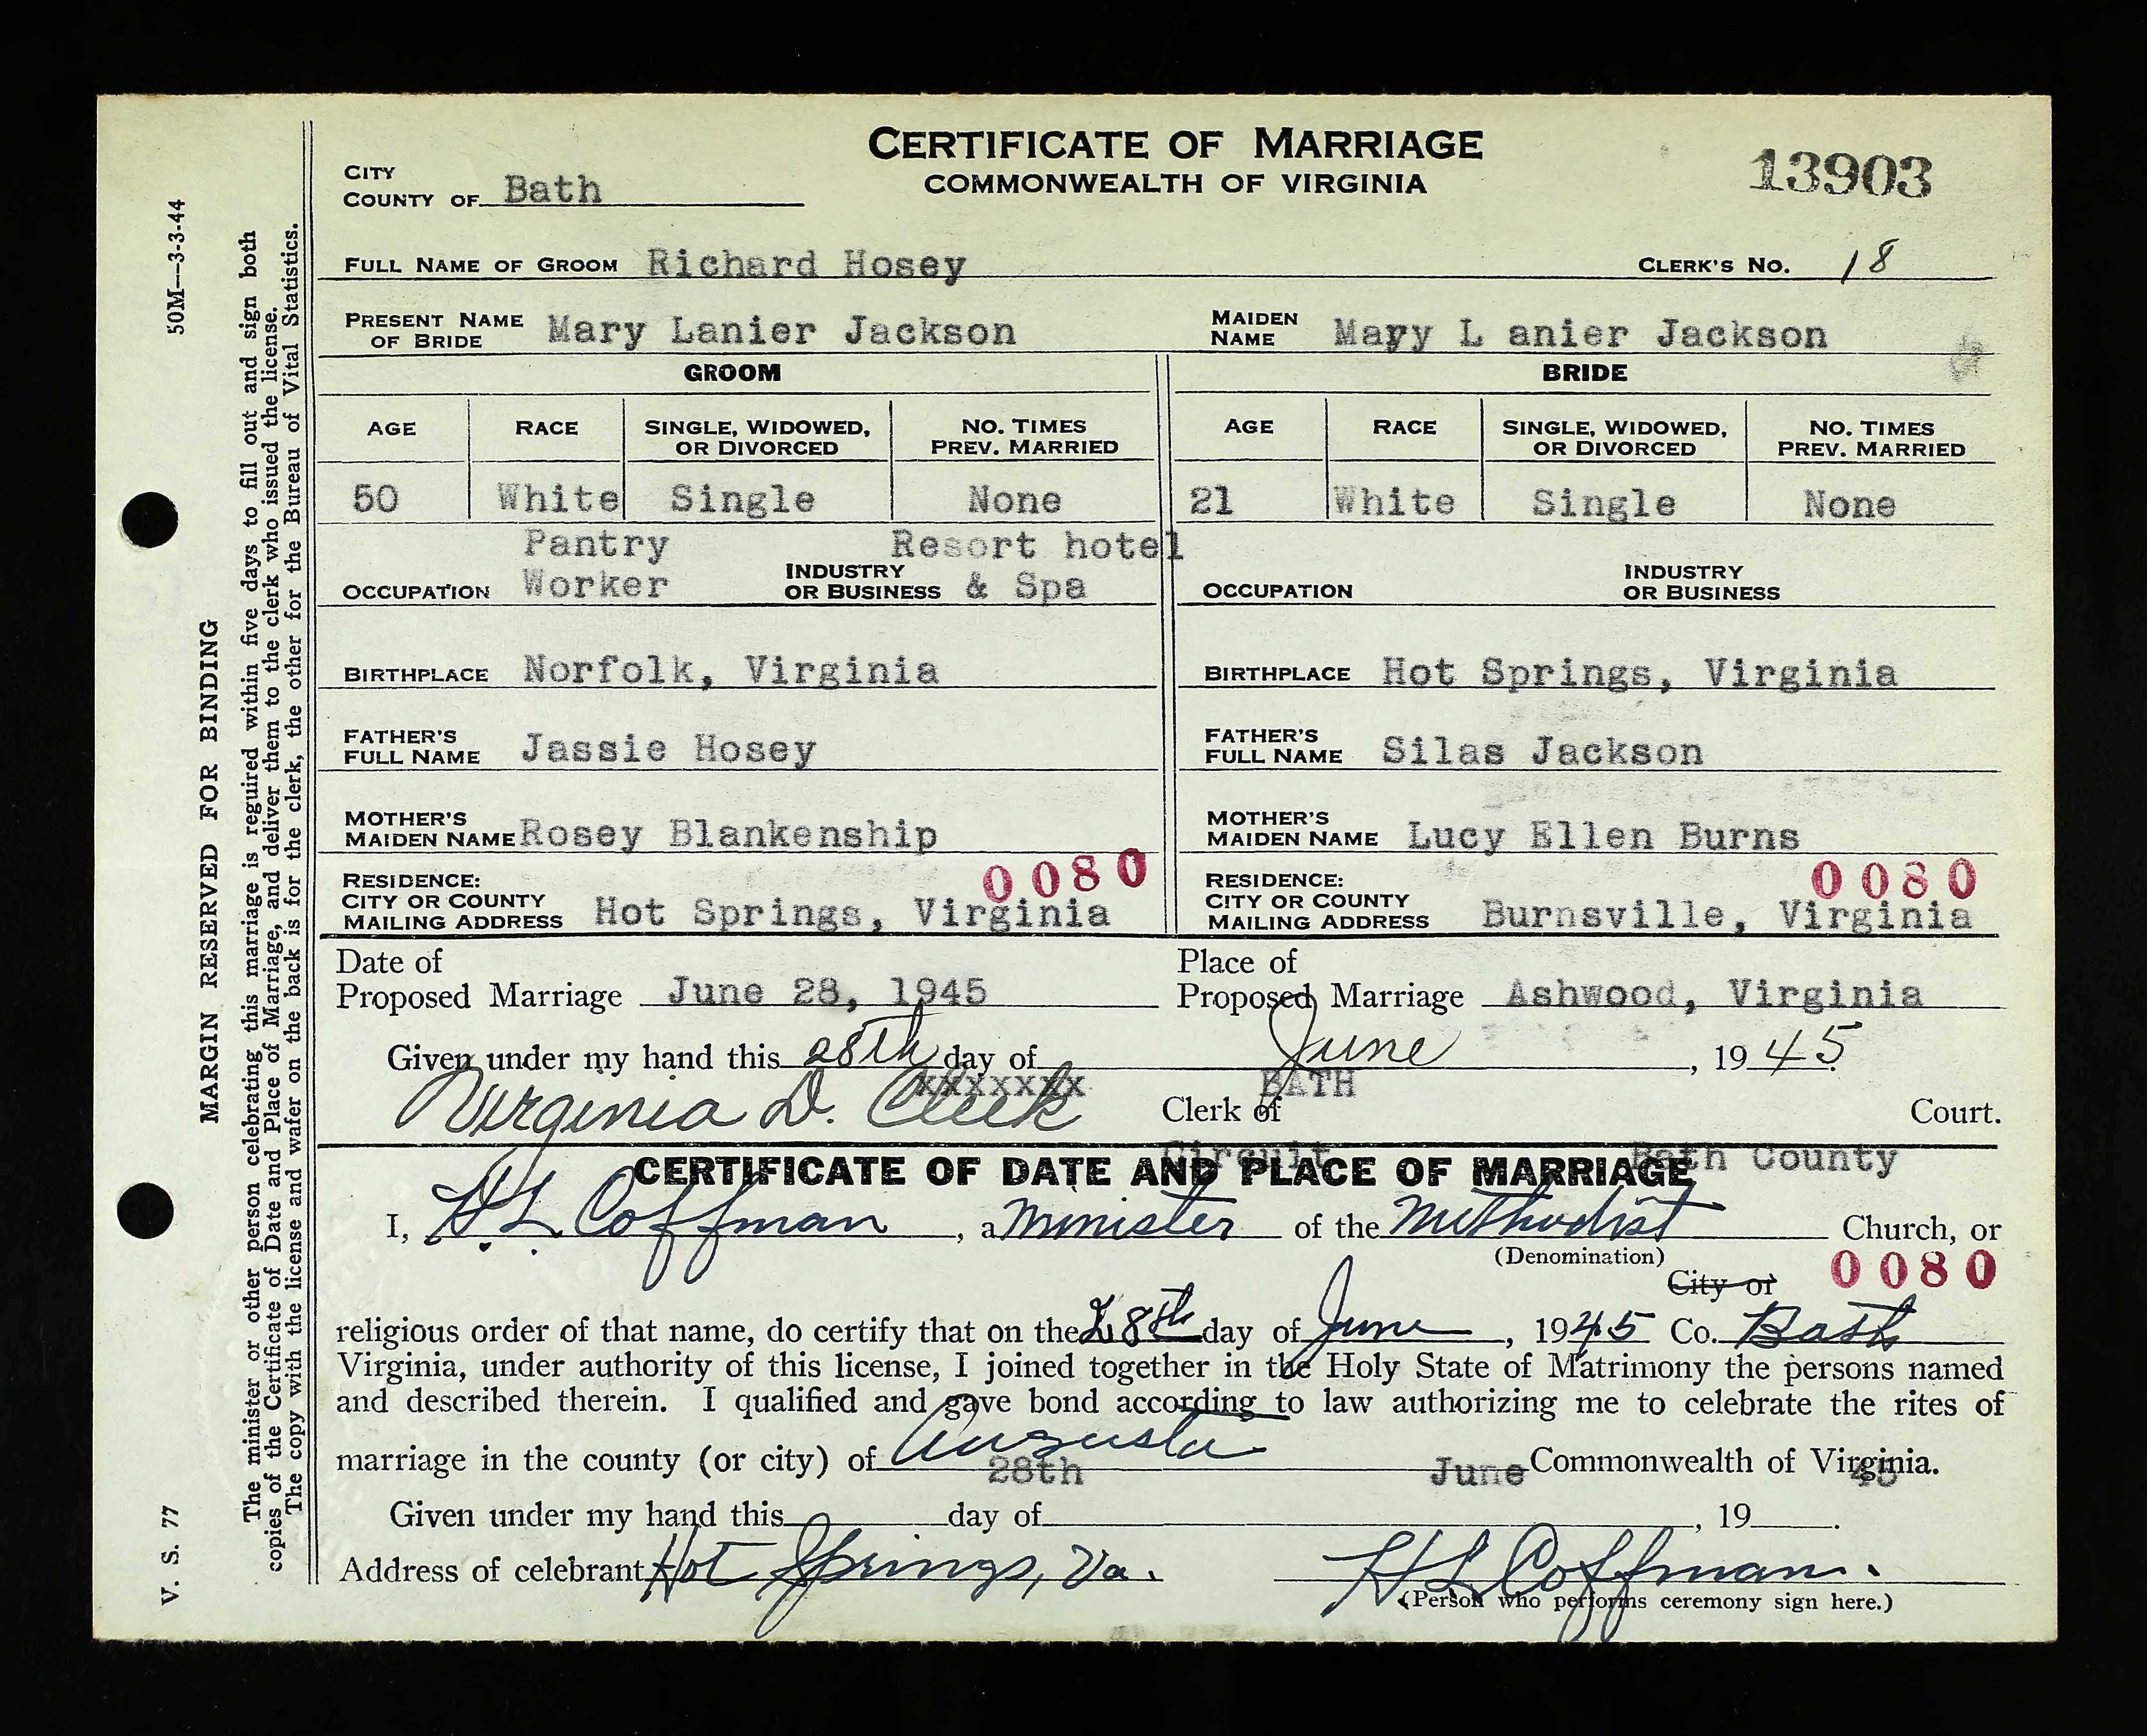 CERTIFICATE OF MARRIAGE
COMMONWEALTH OF VIRGINIA
13903
CITY
COUNTY OF Bath
FULL NAME OF GROOM Richard Hosey CLERK'S NO. 18
PRESENT NAME OF BRIDE Mary Lanier Jackson MAIDEN NAME Mayy L anier Jackson
GROOM BRIDE
AGE RACE SINGLE, WIDOWED, OR DIVORCED NO. TIMES PREV. MARRIED AGE RACE SINGLE, WIDOWED, OR DIVORCED NO. TIMES PREV. MARRIED
50 White Single None 21 White Single None
OCCUPATION Pantry Worker INDUSTRY OR BUSINESS Resort hotel & Spa OCCUPATION INDUSTRY OR BUSINESS
BIRTHPLACE Norfolk, Virginia BIRTHPLACE Hot Springs, Virginia
FATHER'S FULL NAME Jassie Hosey FATHER'S FULL NAME Silas Jackson
MOTHER'S MAIDEN NAME Rosey Blankenship MOTHER'S MAIDEN NAME Lucy Ellen Burns
0080 0080
RESIDENCE: CITY OR COUNTY MAILING ADDRESS Hot Springs, Virginia RESIDENCE: CITY OR COUNTY MAILING ADDRESS Burnsville, Virginia
Date of Proposed Marriage June 28, 1945 Place of Proposed Marriage Ashwood, Virginia
Given under my hand this 28th day of June, 1945
xxxxxxx BATH
Virginia D. Cleek Clerk of Court.
Circuit Bath County
CERTIFICATE OF DATE AND PLACE OF MARRIAGE
I, H L Coffman, a Minister of the Methodist Church, or
(Denomination)
City or 0080
religious order of that name, do certify that on the 28th day of June, 1945 Co. Bath
Virginia, under authority of this license, I joined together in the Holy State of Matrimony the persons named
and described therein. I qualified and gave bond according to law authorizing me to celebrate the rites of
marriage in the county (or city) of Augusta Commonwealth of Virginia.
28th June 45
Given under my hand this day of , 19 .
Address of celebrant Hot Springs, Va. H L Coffman.
(Person who performs ceremony sign here.)
50M—3-3-44
MARGIN RESERVED FOR BINDING
V. S. 77
The minister or other person celebrating this marriage is reguired within five days to fill out and sign both
copies of the Certificate of Date and Place of Marriage, and deliver them to the clerk who issued the license.
The copy with the license and wafer on the back is for the clerk, the other for the Bureau of Vital Statistics.